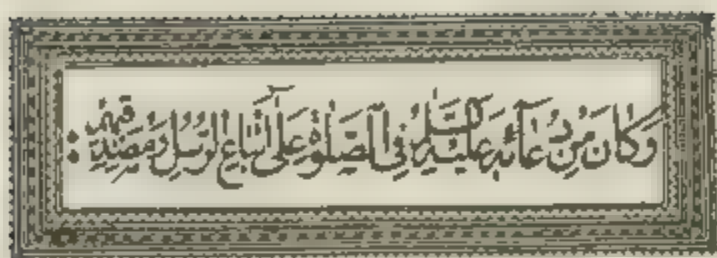 وَكَانَ مِنْ دُعَائِهِ عَلَيْهِ السَّلَامُ فِي الصَّلٰوةِ عَلٰى أَتْبَاعِ الرُّسُلِ وَمُصَدِّقِيهِمْ :